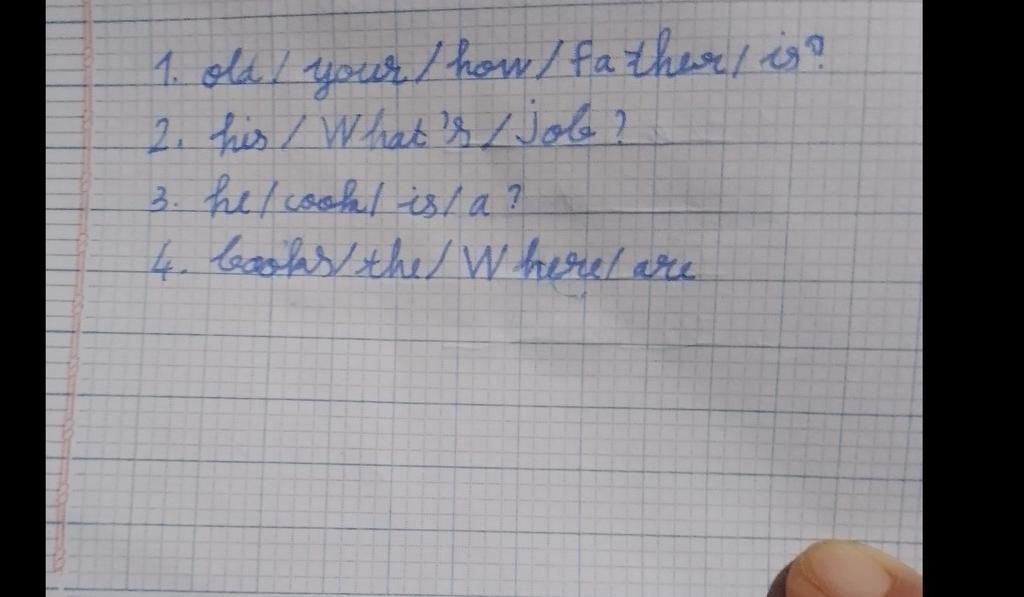 1. old / your / how / father / is?
2. his / What's / job?
3. he / cook / is / a?
4. books / the / Where / are